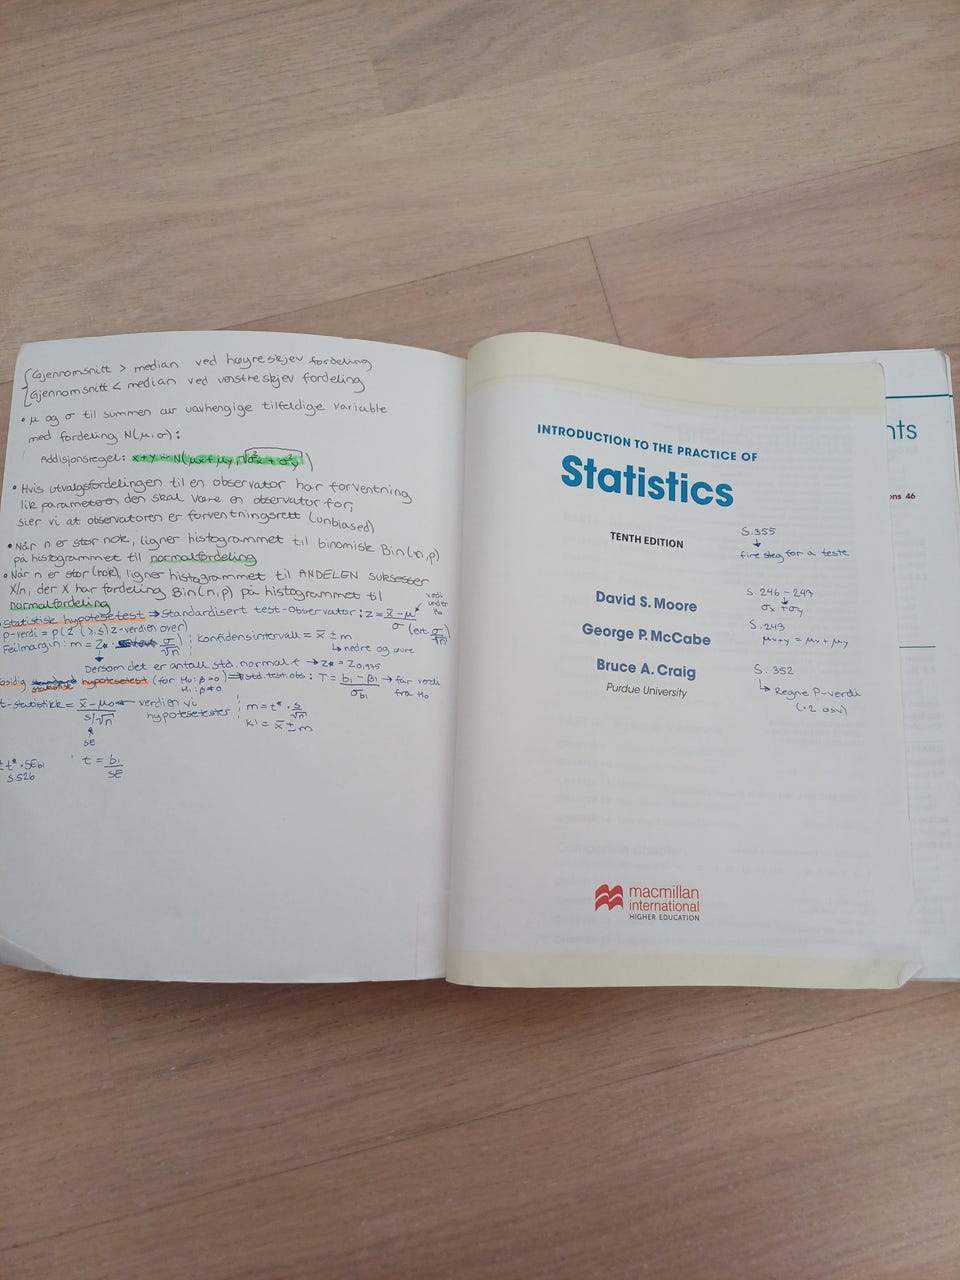 Gjennomsnitt > median ved høyreskjev fordeling
Gjennomsnitt < median ved venstreskjev fordeling
• μ og σ til summen av uavhengige tilfeldige variable
med fordeling N(μ, σ):
Addisjonsregel: x+y ~ N(μx + μy, √σ²x + σ²y)
• Hvis utvalgsfordelingen til en observator har forventning
lik parameteren den skal være en observator for,
sier vi at observatoren er forventningsrett (unbiased)
• Når n er stor nok, ligner histogrammet til binomisk Bin(n,p)
på histogrammet til normalfordeling
• Når n er stor (nok), ligner histogrammet til ANDELEN suksesser
X/n, der X har fordeling Bin(n,p) på histogrammet til
normalfordeling
Statistisk hypotesetest ⇒ standardisert test-observator: z = x̄ - μ / σ (evt σ/√n)
verdi under H₀
p-verdi = P(Z (>,≤) z-verdien over)
Feilmargin: m = z* · σ/√n ; konfidensintervall = x̄ ± m
↳ nedre og øvre
Dersom det er antall std. normal.f → z* = z0,975
hypotesetest (for H₀: β=0) ⇒ std. test. obs: T = b₁ - β₁ / σb₁ → får verdi fra H₀
H₁: β≠0
t-statistikk = x̄ - μ₀ / s/√n ← verdien vi hypotesetester
SE
m = t* · s/√n
KI = x̄ ± m
t* · SEb₁
s.526
t = b₁/SE
INTRODUCTION TO THE PRACTICE OF
Statistics
TENTH EDITION
David S. Moore
George P. McCabe
Bruce A. Craig
Purdue University
S.355
↓
fire steg for å teste
s. 246 - 247
↓
σx + σy
S. 243
μx+y = μx + μy
S. 352
↳ Regne P-verdi
(·2 osv)
macmillan
international
HIGHER EDUCATION
nts
ons 46